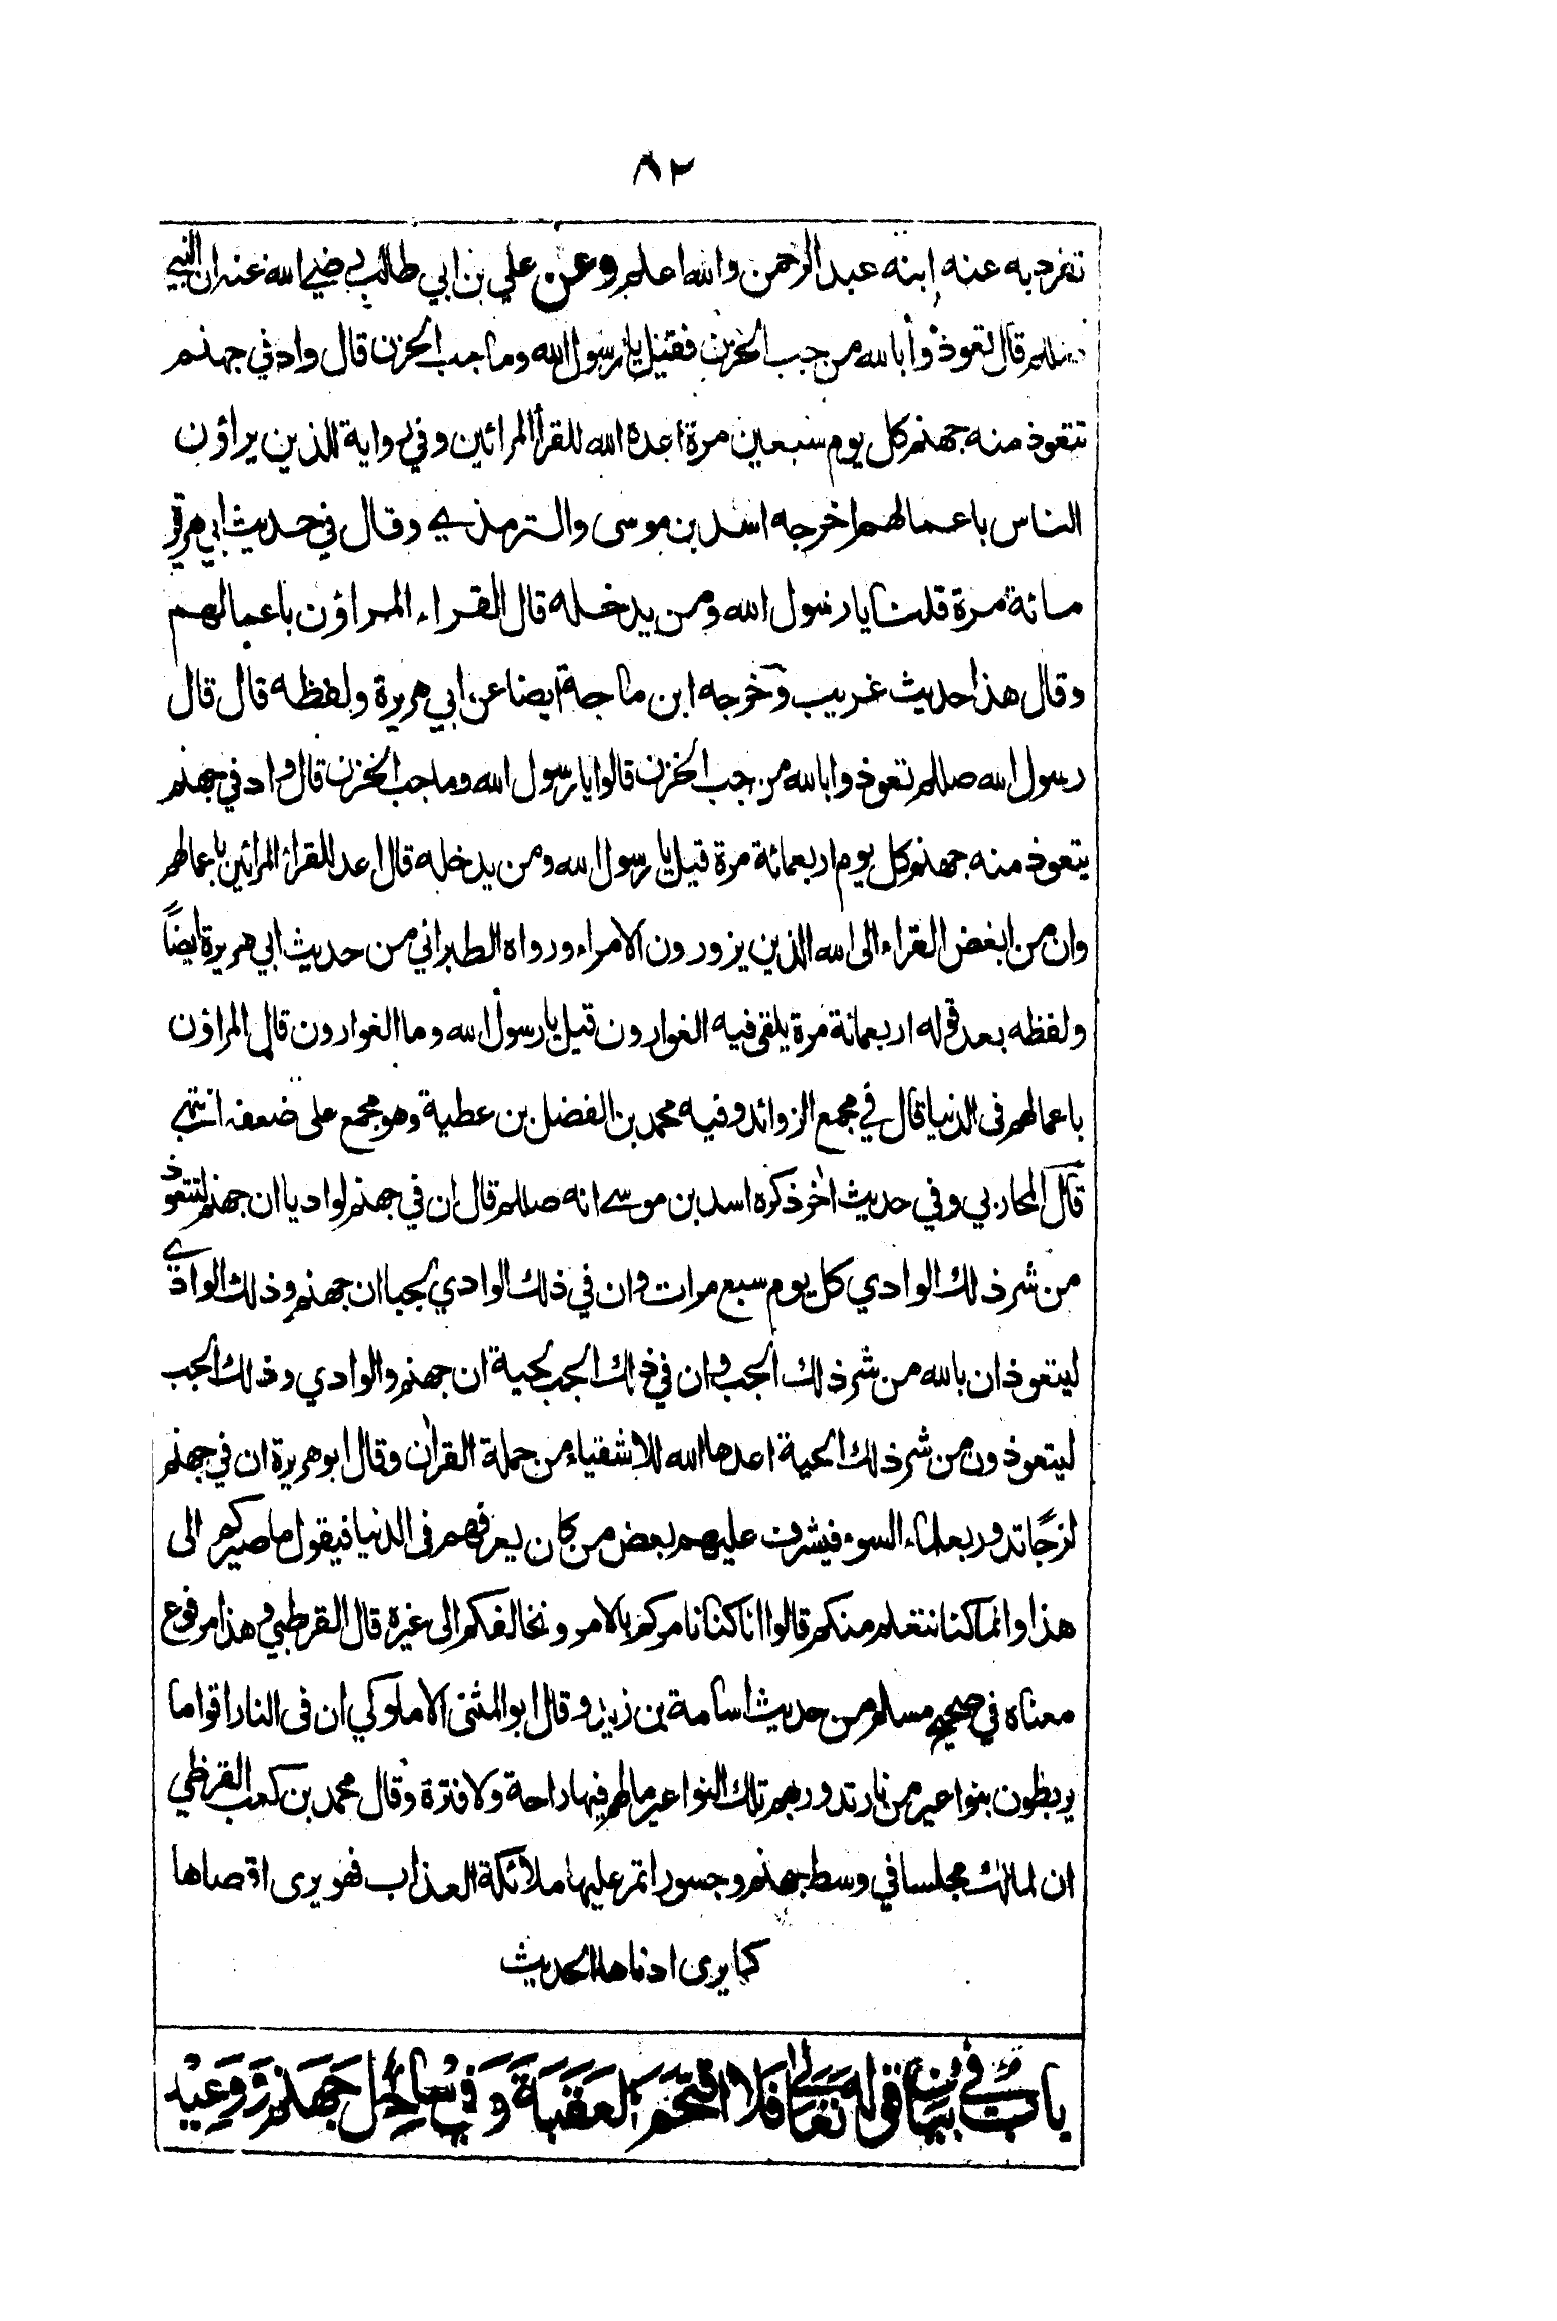 ٨٢
تفرد به عنه ابنه عبد الرحمن والله اعلم وعن علي بن ابي طالب رضي الله عنه ان النبي
صللم قال تعوذوا بالله من جب الحزن فقيل يا رسول الله وما جب الحزن قال واد في جهنم
تتعوذ منه جهنم كل يوم سبعين مرة اعده الله للقرأ المرائين وفي رواية للذين يراؤن
الناس باعمالهم اخرجه اسد بن موسى والترمذي وقال في حديث ابي هريرة
مائة مرة قلنا يا رسول الله ومن يدخله قال القراء المراؤن باعمالهم
وقال هذا حديث غريب وخرجه ابن ماجة ايضا عن ابي هريرة ولفظه قال قال
رسول الله صللم تعوذوا بالله من جب الحزن قالوا يا رسول الله وما جب الحزن قال واد في جهنم
يتعوذ منه جهنم كل يوم اربعمائة مرة قيل يا رسول الله ومن يدخله قال اعد للقراء المرائين باعمالهم
وان من ابغض القراء الى الله الذين يزورون الامراء ورواه الطبراني من حديث ابي هريرة ايضاً
ولفظه بعد قوله اربعمائة مرة يلقى فيه الغرارون قيل يا رسول الله وما الغرارون قال المراؤن
باعمالهم فى الدنيا قال في مجمع الزوائد وفيه محمد بن الفضل بن عطية وهو مجمع على ضعفه انتهى
قال المحاربي وفي حديث اخر ذكره اسد بن موسى انه صللم قال ان في جهنم لواديا ان جهنم لتتعوذ
من شر ذلك الوادي كل يوم سبع مرات وان في ذلك الوادي لجبا ان جهنم وذلك الوادي
ليتعوذان بالله من شر ذلك الجب وان في ذلك الجب لحية ان جهنم والوادي وذلك الجب
ليتعوذون من شر ذلك الحية اعدها الله للاشقياء من حملة القران وقال ابو هريرة ان في جهنم
لرحًا تدور بعلماء السوء فيشرف عليهم بعض من كان يعرفهم فى الدنيا فيقول ما صيركم الى
هذا وانما كنا نتعلم منكم قالوا انا كنا نامركم بالامر ونخالفكم الى غيره قال القرطبي وهذا مرفوع
معناه في صحيح مسلم من حديث اسامة بن زيد وقال ابو المثنى الاملوكي ان فى النار اقواما
يربطون بنواعير من نار تدور بهم تلك النواعير مالهم فيها راحة ولا فترة وقال محمد بن كعب القرظي
ان لمالك مجلسا في وسط جهنم وجسورا تمر عليها ملائكة العذاب فهو يرى اقصاها
كما يرى ادناها الحديث
باب في بيان قوله تعالى فلا اقتحم العقبة وفي ساحل جهنم ووعيد